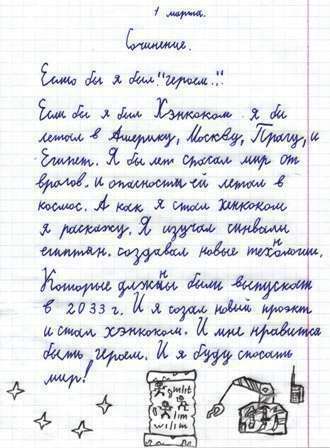 1 марта.
Сочинение.
Если бы я был "героем..."
Если бы я был Хэнкоком я бы
летал в Америку, Москву, Прагу, и
Египет. Я бы лет спасал мир от
врагов. и опасностей летал в
космос. А как я стал хенкоком
я раскажу. Я изучал символи
египтян. создавал новые технологии.
Которые должны были выпускат
в 2033 г. И я созал новий проэкт
и стал хэнкоком. И мне нравится
быть героем. И я буду спосать
мир!
gmlit
lim
wilim